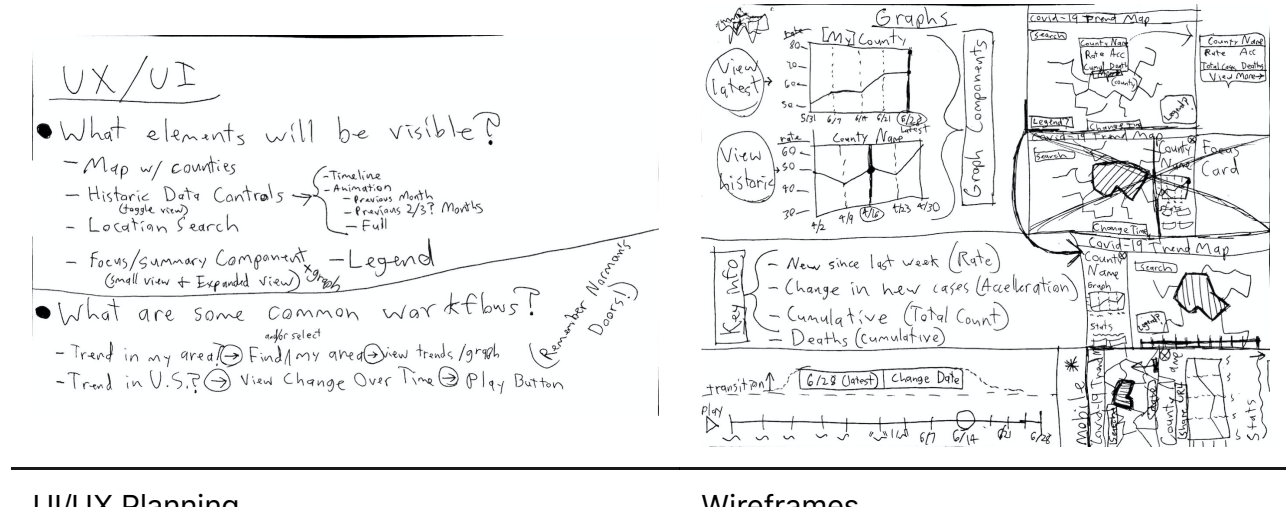 UX/UI
What elements will be visible?
- Map w/ counties
- Historic Data Controls →
(toggle view)
- Timeline
- Animation
- Previous Month
- Previous 2/3? Months
- Full
- Location Search
- Focus/summary Component
(small view + Expanded view)
+graph
- Legend
What are some common workflows?
and/or select
- Trend in my area? → Find/my area → view trends/graph
- Trend in U.S.? → View Change Over Time → Play Button
(Remember Norman's
Doors!)
UI/UX Planning
Graphs
View
latest
rate
[My] County
80
70
60
50
5/31 6/7 6/14 6/21 6/28
Latest
View
historic
rate
County Name
60
50
40
30
4/2 4/9 4/16 4/23 4/30
Graph Components
Key info
- New since last week (Rate)
- Change in new cases (Accelleration)
- Cumulative (Total Count)
- Deaths (Cumulative)
transition↑
6/28 (latest) Change Date
Play
6/7 6/14 6/21 6/28
Covid-19 Trend Map
Search
County Name
Rate Acc
Cumul Death
(county)
County Name
Rate Acc
Total Cases Deaths
View More→
Legend?
Legend?
Change Time
Covid-19 Trend Map
Search
County
Name
Stats
Change Time
Focus
Card
Covid-19 Trend Map
County
Name
Graph
Stats
Search
Legend?
Mobile
Covid-19 Trend
Search
County
Stats
Wireframes